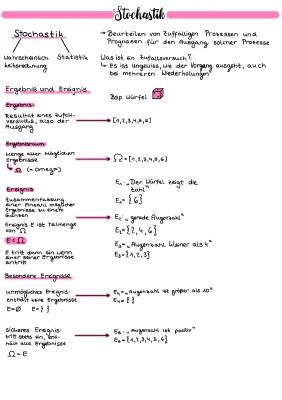 Stochastik
Stochastik
→ Beurteilen von zufälligen Prozessen und
Prognosen für den Ausgang solcher Prozesse
Wahrscheinlich Statistik
keitsrechnung
Was ist ein Zufallsversuch?
↳ Es ist ungewiss, wie der Vorgang ausgeht, auch
bei mehreren Wiederholungen
Ergebnis und Ereignis
Bsp. Würfel
Ergebnis:
Resultat eines Zufalls-
versuchs, also der
Ausgang
{1,2,3,4,5,6}
Ergebnisraum:
Menge aller möglichen
Ergebnisse
↳ Ω (= Omega)
Ω = {1,2,3,4,5,6}
Ereignis
Zusammenfassung
einer Anzahl möglicher
Ergebnisse zu einem
Ganzen
Ereignis E ist Teilmenge
von Ω
E ⊂ Ω
E tritt dann ein wenn
einer seiner Ergebnisse
eintritt
E₁: „Der Würfel zeigt die
Zahl"
E₁= {6}
E₂: „gerade Augenzahl"
E₂= {2,4,6}
E₃= „Augenzahl kleiner als 4"
E₃= {1,2,3}
Besondere Ereignisse
unmögliches Ereignis:
enthält keine Ergebnisse
E=Ø E={ }
E₄= „Augenzahl ist größer als 10"
E₄= { }
Sicheres Ereignis:
tritt stets ein,
hält alle Ergebnisse
Ω = E
„Augenzahl ist positiv"
= {1,2,3,4,5,6}